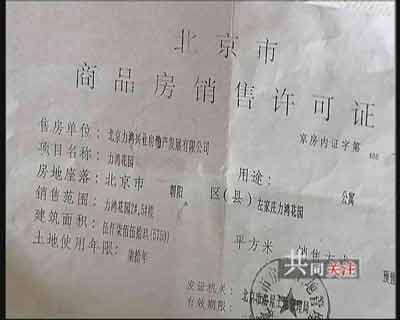 北京市
商品房销售许可证
京房内证字第 408
售房单位：北京力鸿兴业房地产发展有限公司
项目名称：力鸿花园
用途：公寓
房地座落：北京市 朝阳 区（县）左家庄力鸿花园
销售范围：力鸿花园2#,5#楼
建筑面积：伍仟柒佰伍拾玖(5759) 平方米
销售方式
土地使用年限：柒拾年
预售
发证机关：
有效期限：
共同关注